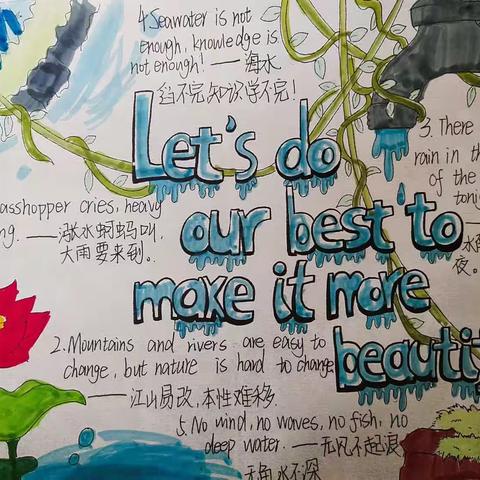 4.Seawater is not
enough, knowledge is
not enough! —— 海水
不完知识学不完!
Let's do
our best to
make it more
beautif
3. There
rain in th
of the
tonig
夜。
asshopper cries, heavy
ng. ——涨水蚵蚂叫,
大雨要来到。
2. Mountains and rivers are easy to
change, but nature is hard to change
——江山易改,本性难移.
5. No wind, no waves, no fish, no
deep water. ——无风不起浪,
无鱼水不深